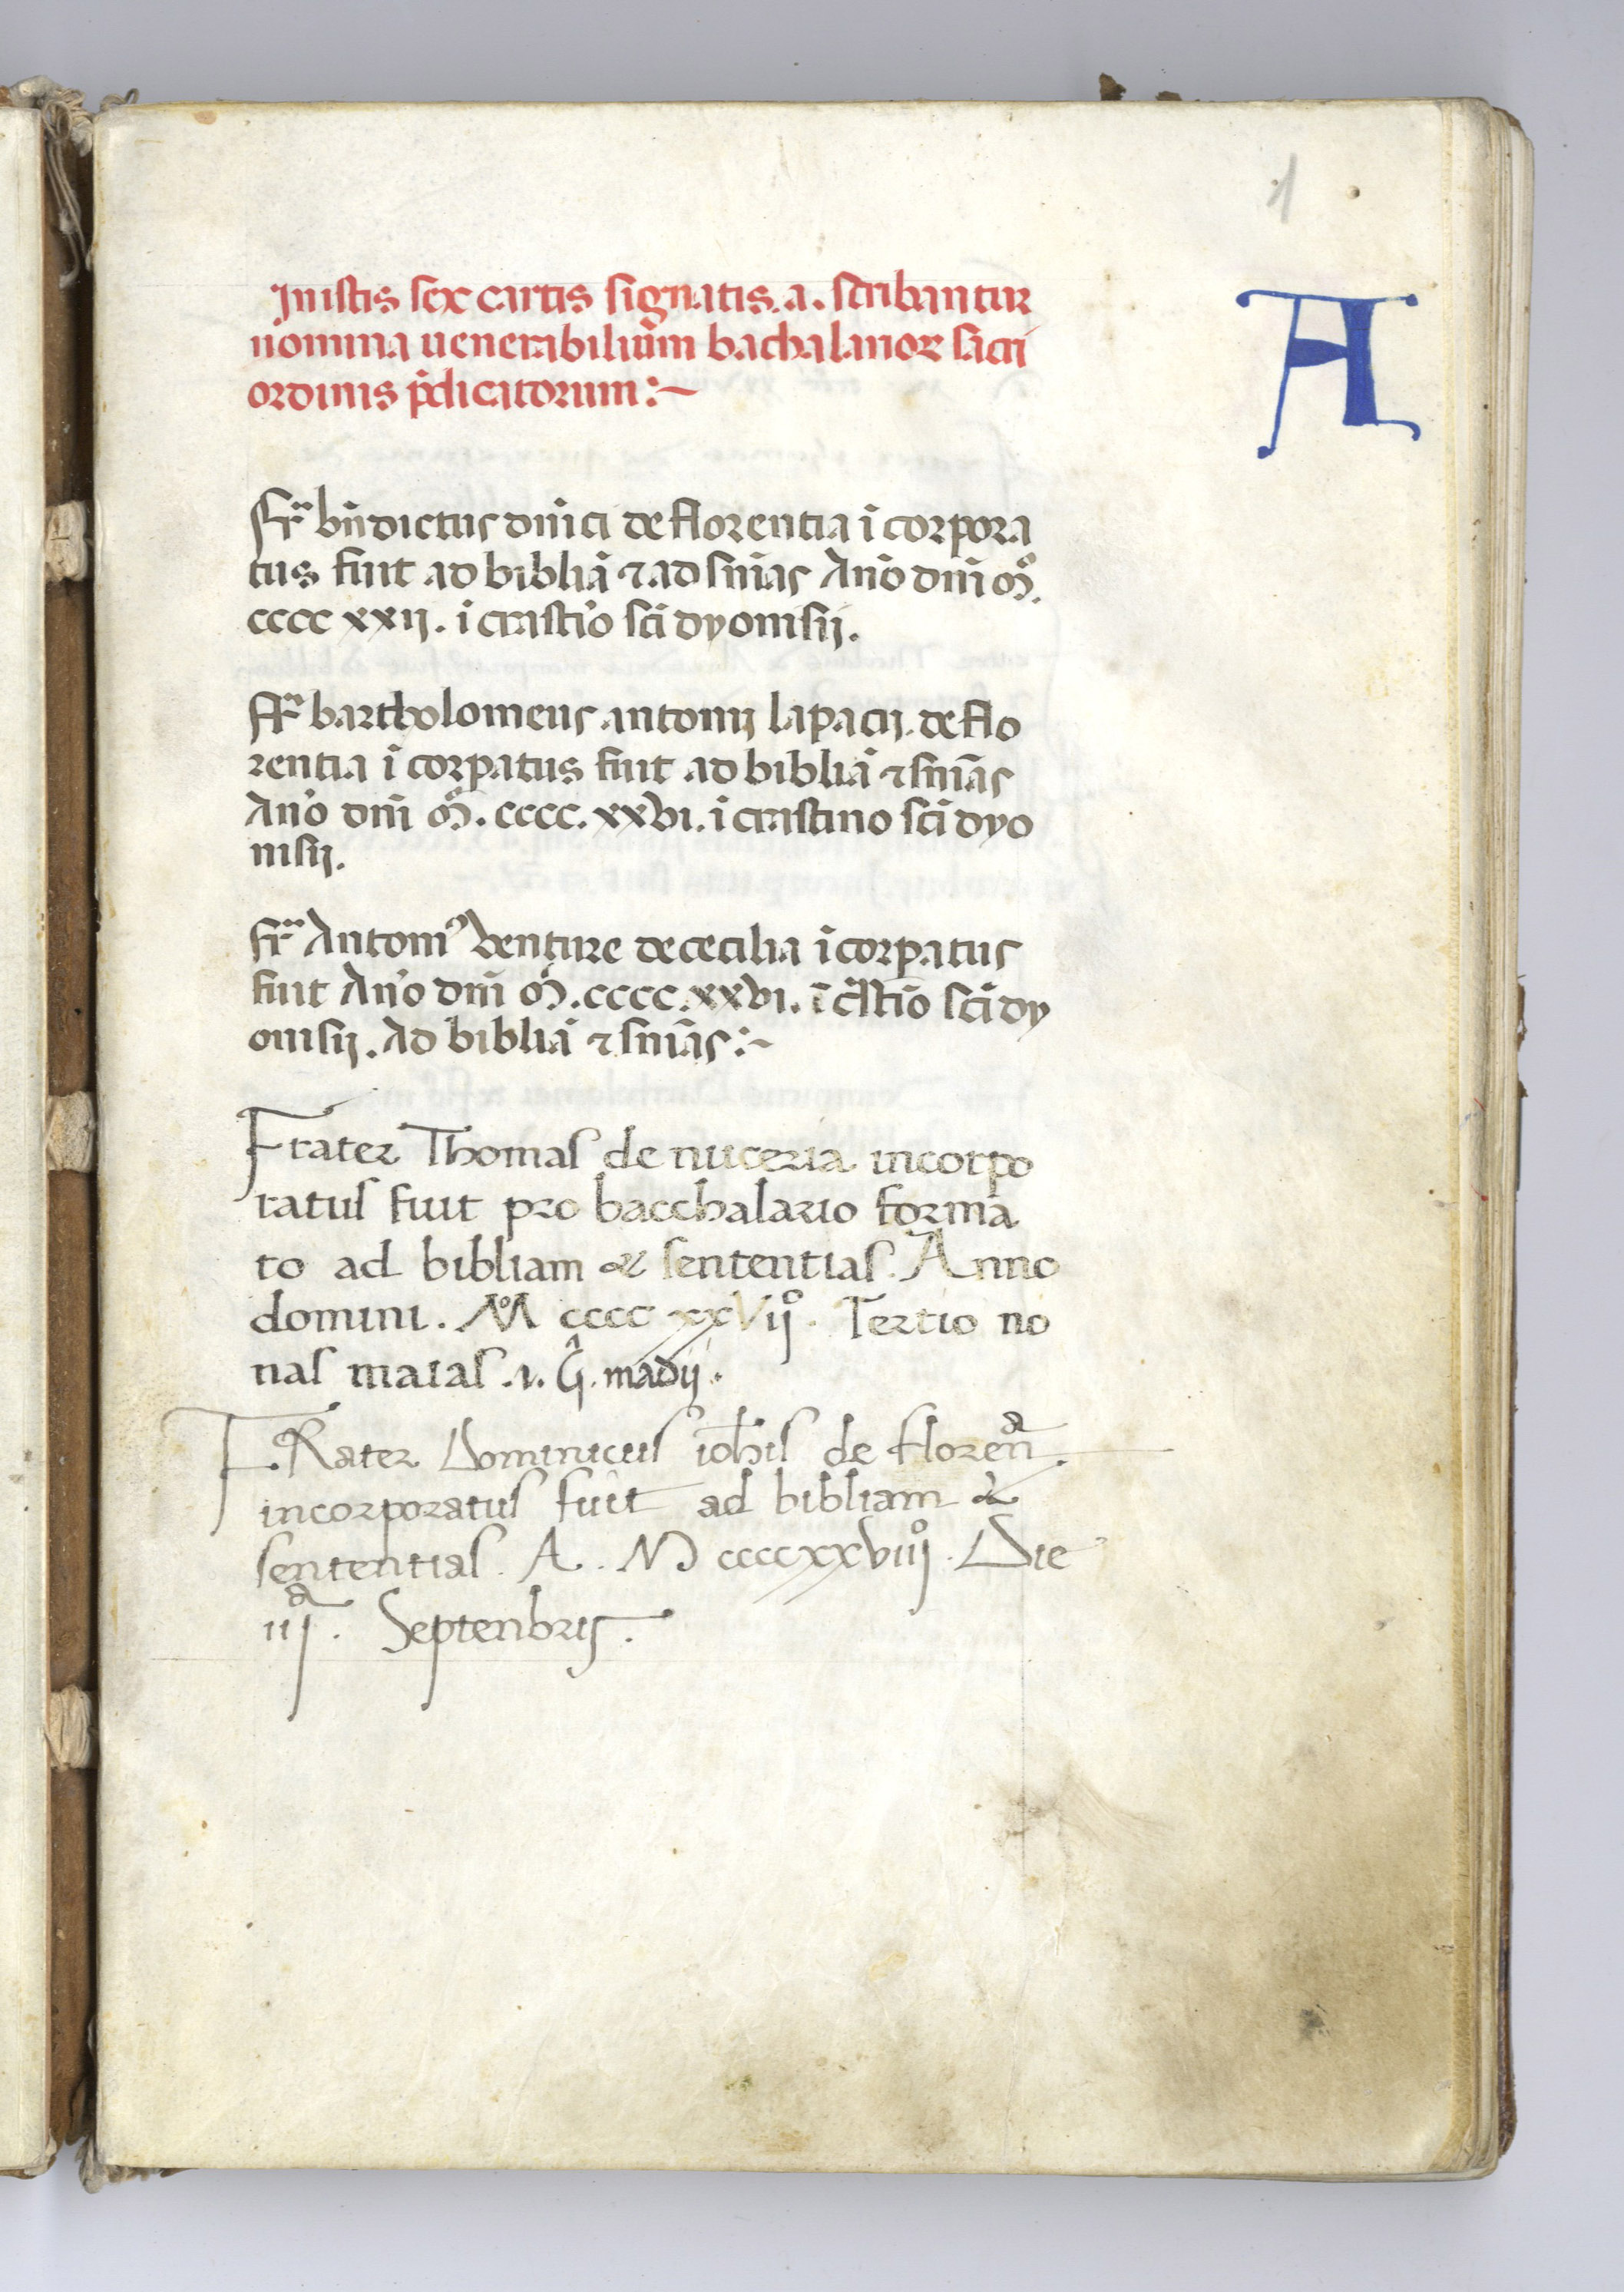 1
A
Inistis sex cartis signatis .a. scribantur
nomina uenerabilium bachalarioꝝ sacri
ordinis p̄dicatorum :~
Fr̄ bn̄dictus dn̄ici de florentia īcorpora
tus fuit ad bibliā ⁊ ad sn̄ias Ano dn̄i Mº.
cccc xxij. ī crastīo sc̄i dyonisij.
Fr̄ bartholomeus antonij lapacij. de flo
rentia ī corpatus fuit ad bibliā ⁊ sn̄ias
Ano dn̄i Mº. cccc. xxvi. ī crastino sc̄i dyo
nisij.
fr̄ Antoniꝰ Venture de cecilia īcorpatus
fuit Ano dn̄i Mº. cccc. xxvi. ī cᵃstīo sc̄i dy
onisij. Ad bibliā ⁊ sn̄ias :~
Frater Thomas de nuceria incorpo
ratus fuit pro bacchalario forma
to ad bibliam & sententias. Anno
domini. Mº cccc xxVijº. Tertio no
nas maias .v. madij.
FRater Dominicus ioh̄is de florenᵃ.
incorporatus fuit ad bibliam &
sententias. A. M ccccxxviiijº. Die
iijᵃ. Septenbris.